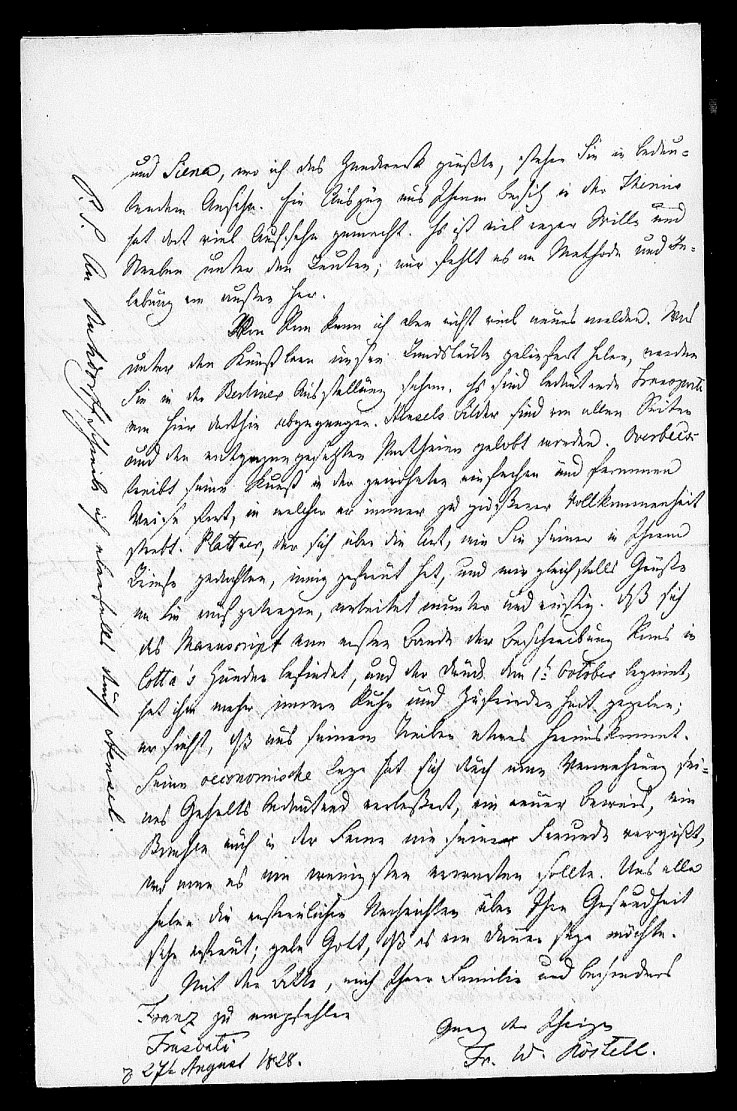 und Siena, wo ich das Handwerk grüßte, stehen Sie in bedeu-
tendem Ansehn. Ein Auszug aus Ihrem Besitz in der Themis
hat dort viel Aufsehn gemacht. Es ist viel reger Wille und
Streben unter den Leuten; nur fehlt es an Methode und Be-
lebung von außen her.
Von Rom kann ich eben nicht viel neues melden. Was
unter den Künstlern unsere Landsleute geliefert haben, werden
Sie in der Berliner Ausstellung sehen. Es sind bedeutende Transporte
von hier dorthin abgegangen. Hensels Bilder sind von allen Seiten
und den entgegengesetzten Partheien gelobt worden. Overbeck
treibt seine Kunst in der gewohnten einfachen und frommen
Weise fort, in welcher er immer zu größerer Vollkommenheit
strebt. Platner, der sich über die Art, wie Sie seiner in Ihrem
Briefe gedachten, innig gefreut hat, und mir gleichfalls Grüße
an Sie aufgetragen, arbeitet munter und rüstig. Daß sich
das Manuscript vom ersten Bande der Beschreibung Roms in
Cotta's Händen befindet, und der Druck den 1t. October beginnt,
hat ihm mehr innere Ruhe und Zufriedenheit gegeben;
er sieht, daß aus seinem Treiben etwas herauskommt.
Seine oeconomische Lage hat sich durch eine Vermehrung sei-
nes Gehalts bedeutend verbessert, ein neuer Beweis, wie
Bunsen auch in der Ferne nie seiner Freunde vergißt,
wo man es am wenigsten erwarten sollte. Uns alle
haben die erfreulichen Nachrichten über Ihre Gesundheit
sehr erfreut; gebe Gott, daß es von Dauer sein möchte.
Mit der Bitte, mich Ihrer Familie und besonders
Franz zu empfehlen
Frascati
27t August 1828.
Ganz der Ihrige
Fr. W. Röstell.
P. S. An schreibe ich ebenfalls durch Hensel.